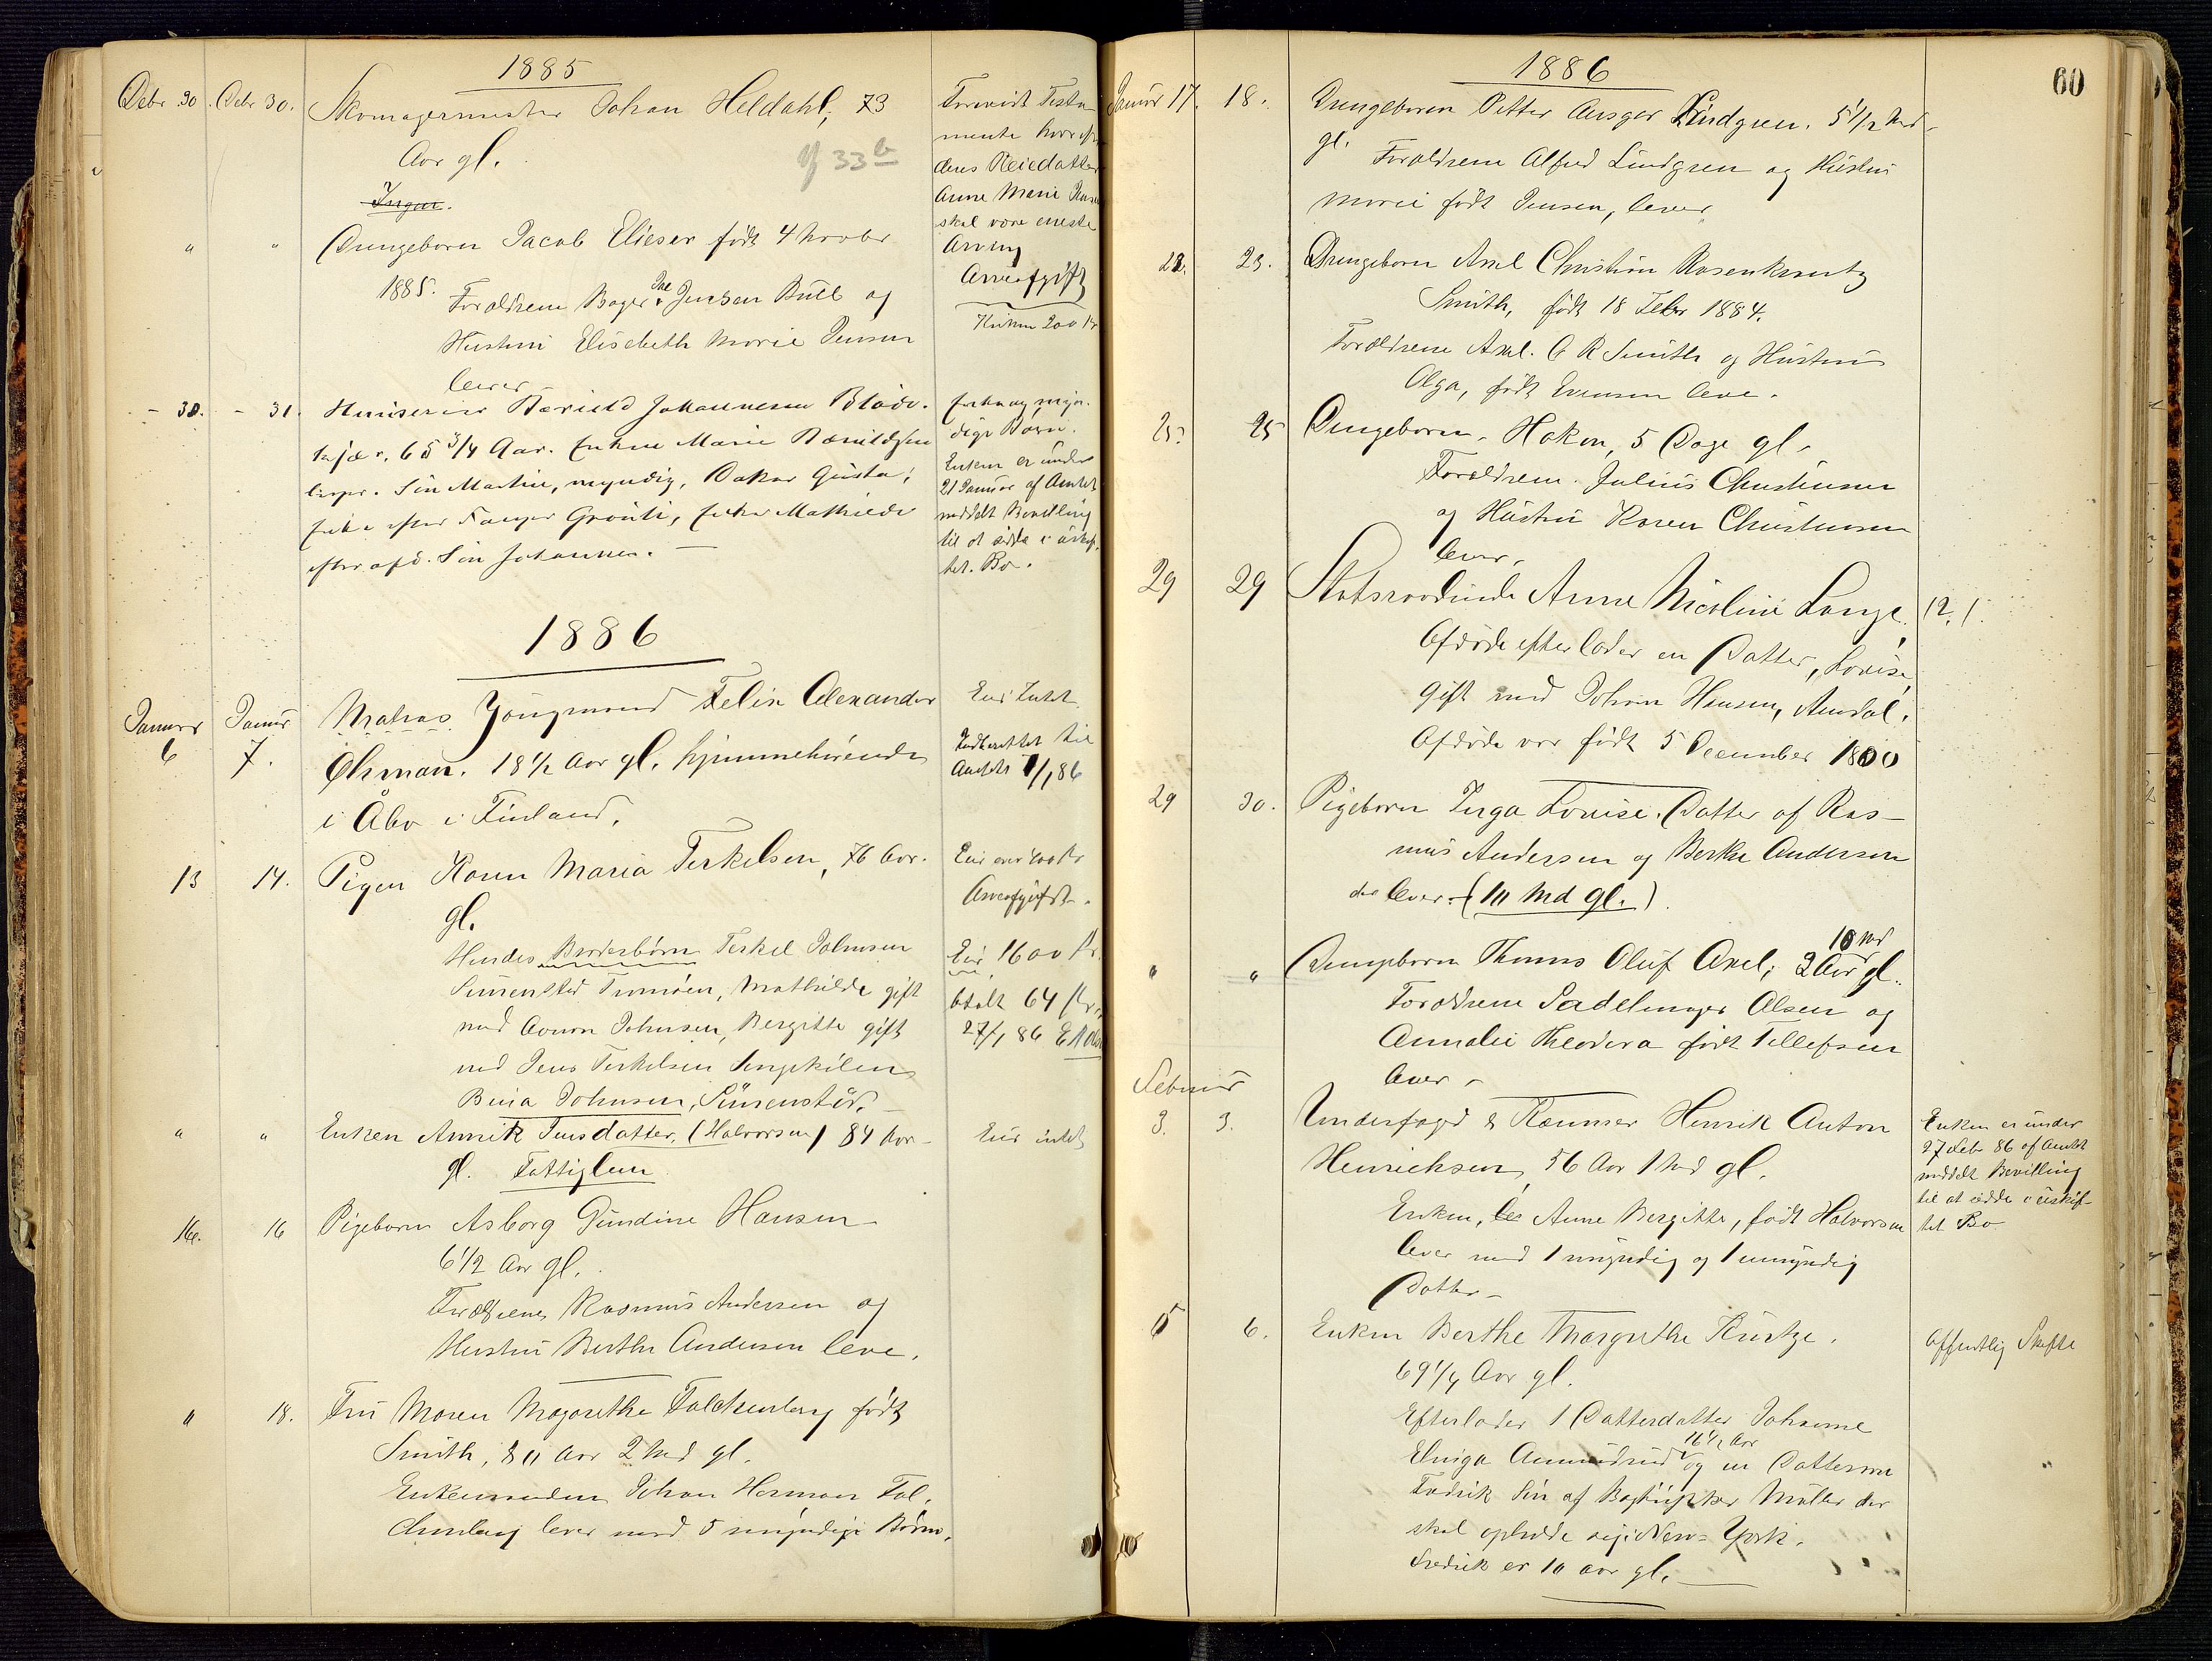 1885
Debr 30. Debr 30. Skomagermester Johan Heldahl, 73
Aar gl.
33 b
Ingen.
" " Drengebarn Jacob Elieser født 4 Novbr
1885. Forældrene Bager Jensen Bull og
Hustru Elisabeth Marie Jensen
lever
Testa-
mente hvorefter
deres Pleiedatter
Anne Marie
skal være eneste
Arving
Arveafgift
200 Kr
- 30. - 31. Johannesen
65 3/4 Aar. Enken Marie
lever. Søn Martin, myndig, Datter
Enke efter Enke Mathilde
efter afd. Søn Johannes. -
myn-
dige Børn.
Enken er under
21 Januar af Amtet
meddelt Bevilling
til at sidde i uskif-
tet Bo.
1886
Januar 6 Januar 7. Matros Jungmand Felix Alexander
Ehman. 18 1/2 Aar gl. hjemmehørende
i Åbo i Finland.
Eier Intet
Indberettet til
Amtet 7/1 86
13 14. Pigen Karen Maria Terkelsen, 76 Aar
gl.
Hendes Broderbørn Terkel Johnsen
Tromøen, Mathilde gift
med Johnsen, Bergitte gift
med Jens Terkelsen
Johnsen,
Eier over 400 Kr
Arveafgift.
Eier 1600 Kr.
btalt 64 Kr.
27/1 86
" " Enken Annik Jensdatter, (Halvorsen) 84 Aar
gl. Fattiglem
Eier intet
16. 16 Pigebarn Asborg Gundine Hansen
6 1/2 Aar gl.
Forældrene Rasmus Andersen og
Hustru Berthe Andersen leve.
" 18. Fru Maren Magarethe Falchenberg født
Smith, 80 Aar 2 Md gl.
Enkemanden Johan Herman Fal-
chenberg lever med 5 myndige Børn.
1886
60
Januar 17. 18. Drengebarn Petter Ansgar Lindgren. 5 1/2 Md
gl. Forældrene Alfred Lindgren og Hustru
Marie født Jensen, lever
22. 23. Drengebarn Axel Christian Rosenkrantz
Smith, født 18 Febr 1884.
Forældrene Axel. C R Smith og Hustru
Olga, født Evensen leve.
25. 25 Drengebarn, Hakon, 5 Dage gl.
Forældrene Julius Christensen
og Hustru Karen Christensen
lever.
29 29 Statsraadinde Anne Nicoline Lange. 12. 1.
Afdøde efterlader en Datter, Lovise,
gift med Johan Hansen, Arendal.
Afdøde var født 5 December 1800
29 30. Pigebarn Inga Lovise. Datter af Ras-
mus Andersen og Berthe Andersen
der lever. (10 Md gl.)
" " Drengebarn Thomas Oluf Axel, 2 Aar 10 Md gl.
Forældrene Sadelmager Olsen og
Annalie Theodora født Tellefsen
lever -
Februar
3. 3. Underfoged & Kæmner Henrik Anton
Henrichsen, 56 Aar 1 Md gl.
Enken, Anne Bergitte, født Halvorsen
lever med 1 myndig og 1 umyndig
Datter -
Enken er under
27 Febr 86 af Amtet
meddelt Bevilling
til at sidde i uskif-
tet Bo
5 6. Enken Berthe Margrethe Kurtze.
69 1/4 Aar gl.
Efterlader 1 Datterdatter Johanne
Elviga Amundrud 16 1/2 Aar og en Dattersøn
Fredrik Søn af Bogtrykker Møller der
skal opholde sig i New-York.
Fredrik er 10 aar gl. -
Offentlig Skifte